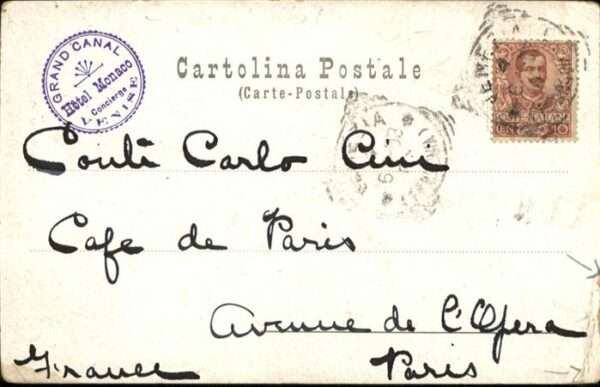 GRAND CANAL
Hôtel Monaco
I. Concierge
VENISE
Cartolina Postale
(Carte-Postale)
VENEZIA
10
Conti Carlo
Cafe de Paris
Avenue de l'Opera
France Paris